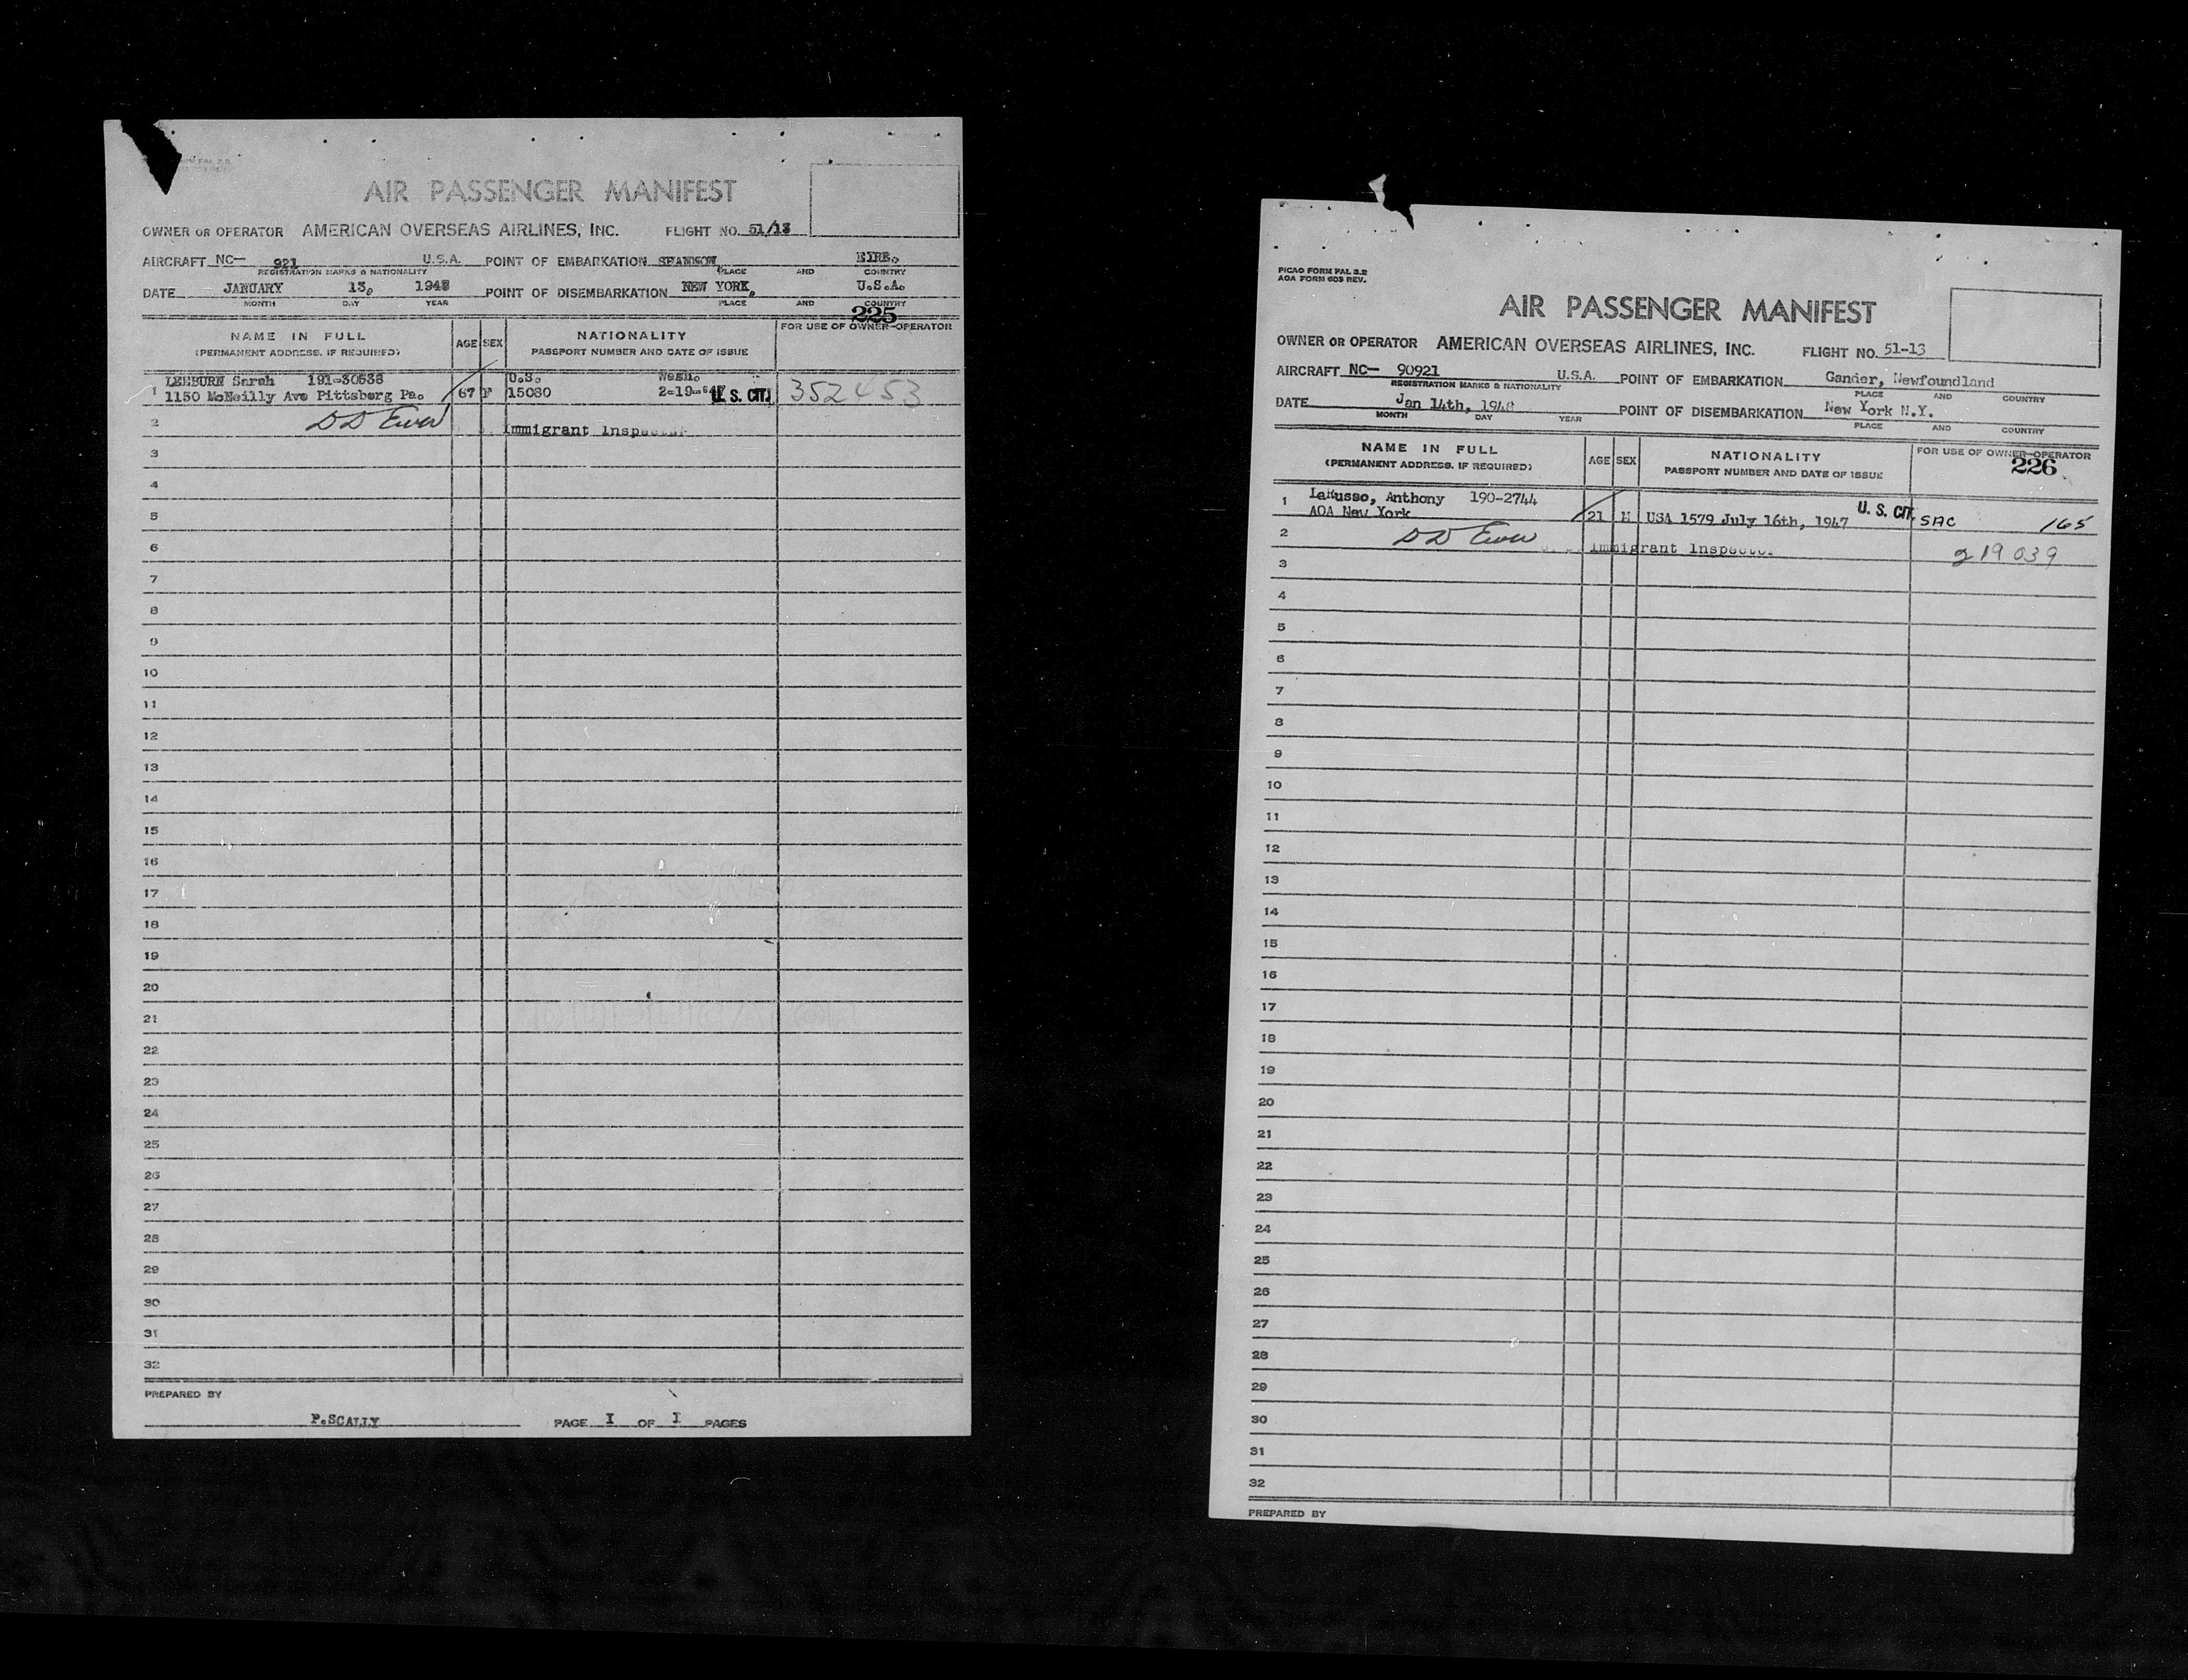 AIR PASSENGER MANIFEST
OWNER OR OPERATOR AMERICAN OVERSEAS AIRLINES, INC. FLIGHT NO. 51/13
AIRCRAFT NC— 921 U.S.A. POINT OF EMBARKATION SHANNON, EIRE.
REGISTRATION MARKS & NATIONALITY PLACE AND COUNTRY
DATE JANUARY 13, 1948 POINT OF DISEMBARKATION NEW YORK, U.S.A.
MONTH DAY YEAR PLACE AND COUNTRY
225
NAME IN FULL AGE SEX NATIONALITY FOR USE OF OWNER-OPERATOR
(PERMANENT ADDRESS, IF REQUIRED) PASSPORT NUMBER AND DATE OF ISSUE
Sarah 191-30538 U.S. Wash.
1 1150 McNeilly Ave Pittsberg Pa. 67 F 15080 2-19-47 U. S. CIT. 352453
2 DD Ewen Immigrant Inspector
3
4
5
6
7
8
9
10
11
12
13
14
15
16
17
18
19
20
21
22
23
24
25
26
27
28
29
30
31
32
PREPARED BY
P.SCALLY PAGE I OF I PAGES
PICAO FORM FAL 3.2
AOA FORM 603 REV.
AIR PASSENGER MANIFEST
OWNER OR OPERATOR AMERICAN OVERSEAS AIRLINES, INC. FLIGHT NO. 51-13
AIRCRAFT NC— 90921 U.S.A. POINT OF EMBARKATION Gander, Newfoundland
REGISTRATION MARKS & NATIONALITY PLACE AND COUNTRY
DATE Jan 14th, 1948 POINT OF DISEMBARKATION New York N.Y.
MONTH DAY YEAR PLACE AND COUNTRY
NAME IN FULL AGE SEX NATIONALITY FOR USE OF OWNER-OPERATOR
(PERMANENT ADDRESS, IF REQUIRED) PASSPORT NUMBER AND DATE OF ISSUE 226
1 LaRusso, Anthony 190-2744
AOA New York 21 M USA 1579 July 16th, 1947 U. S. CIT. SAC 165
2 DD Ewen Immigrant Inspector 219039
3
4
5
6
7
8
9
10
11
12
13
14
15
16
17
18
19
20
21
22
23
24
25
26
27
28
29
30
31
32
PREPARED BY